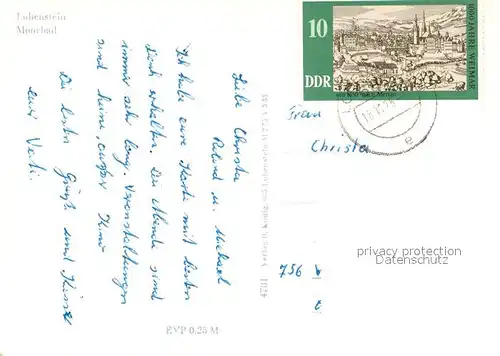 Lobenstein
Moorbad
Liebe Christa
Roland u. Michael
Ich habe eure Karte mit besten
Dank erhalten. Die Abende sind
immer sehr lang. Veranstaltungen
sind keine, außer Kino
Die besten Grüße und Küsse
euer Vati.
EVP 0,25 M
10
DDR
1000 JAHRE WEIMAR
Frau
Christa
756
e
privacy protection
Datenschutz